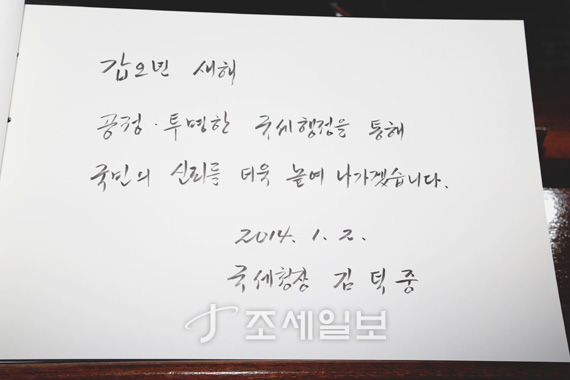 갑오년 새해
공정·투명한 국세행정을 통해
국민의 신뢰를 더욱 높여 나가겠습니다.
2014. 1. 2.
국세청장 김덕중
조세일보